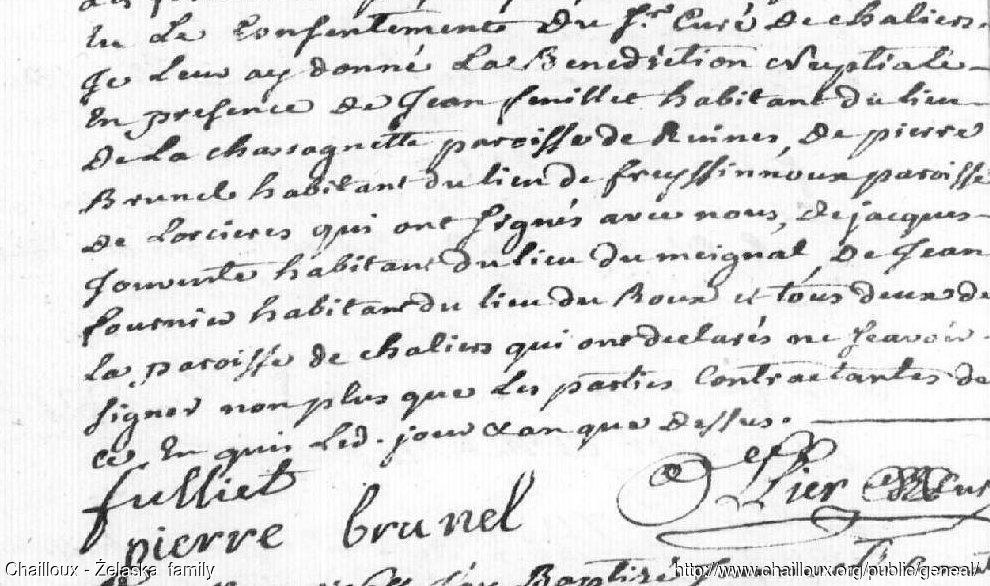 vu Le Consentement du Sr. Curé De chaliers.
Je leur ay donné La Benediction Nuptiale
En presence de Jean feuillet habitant du lieu
De La chassagnette paroisse de Ruines, De pierre
Brunel habitant du lieu de freyssinnoux paroisse
de Lorcieres qui ont signés avec nous, de jacques
Jouvente habitant du lieu du meignal, De Jean
fournier habitant du lieu du Roux et tous deux de
La paroisse de chaliers qui ont declarés ne sçavoir
signer non plus que Les parties Contractantes de
ce Enquis Led. jour & an que dessus.
fulliet
pierre brunel
Chailloux - Żelaska family http://www.chailloux.org/public/geneal/